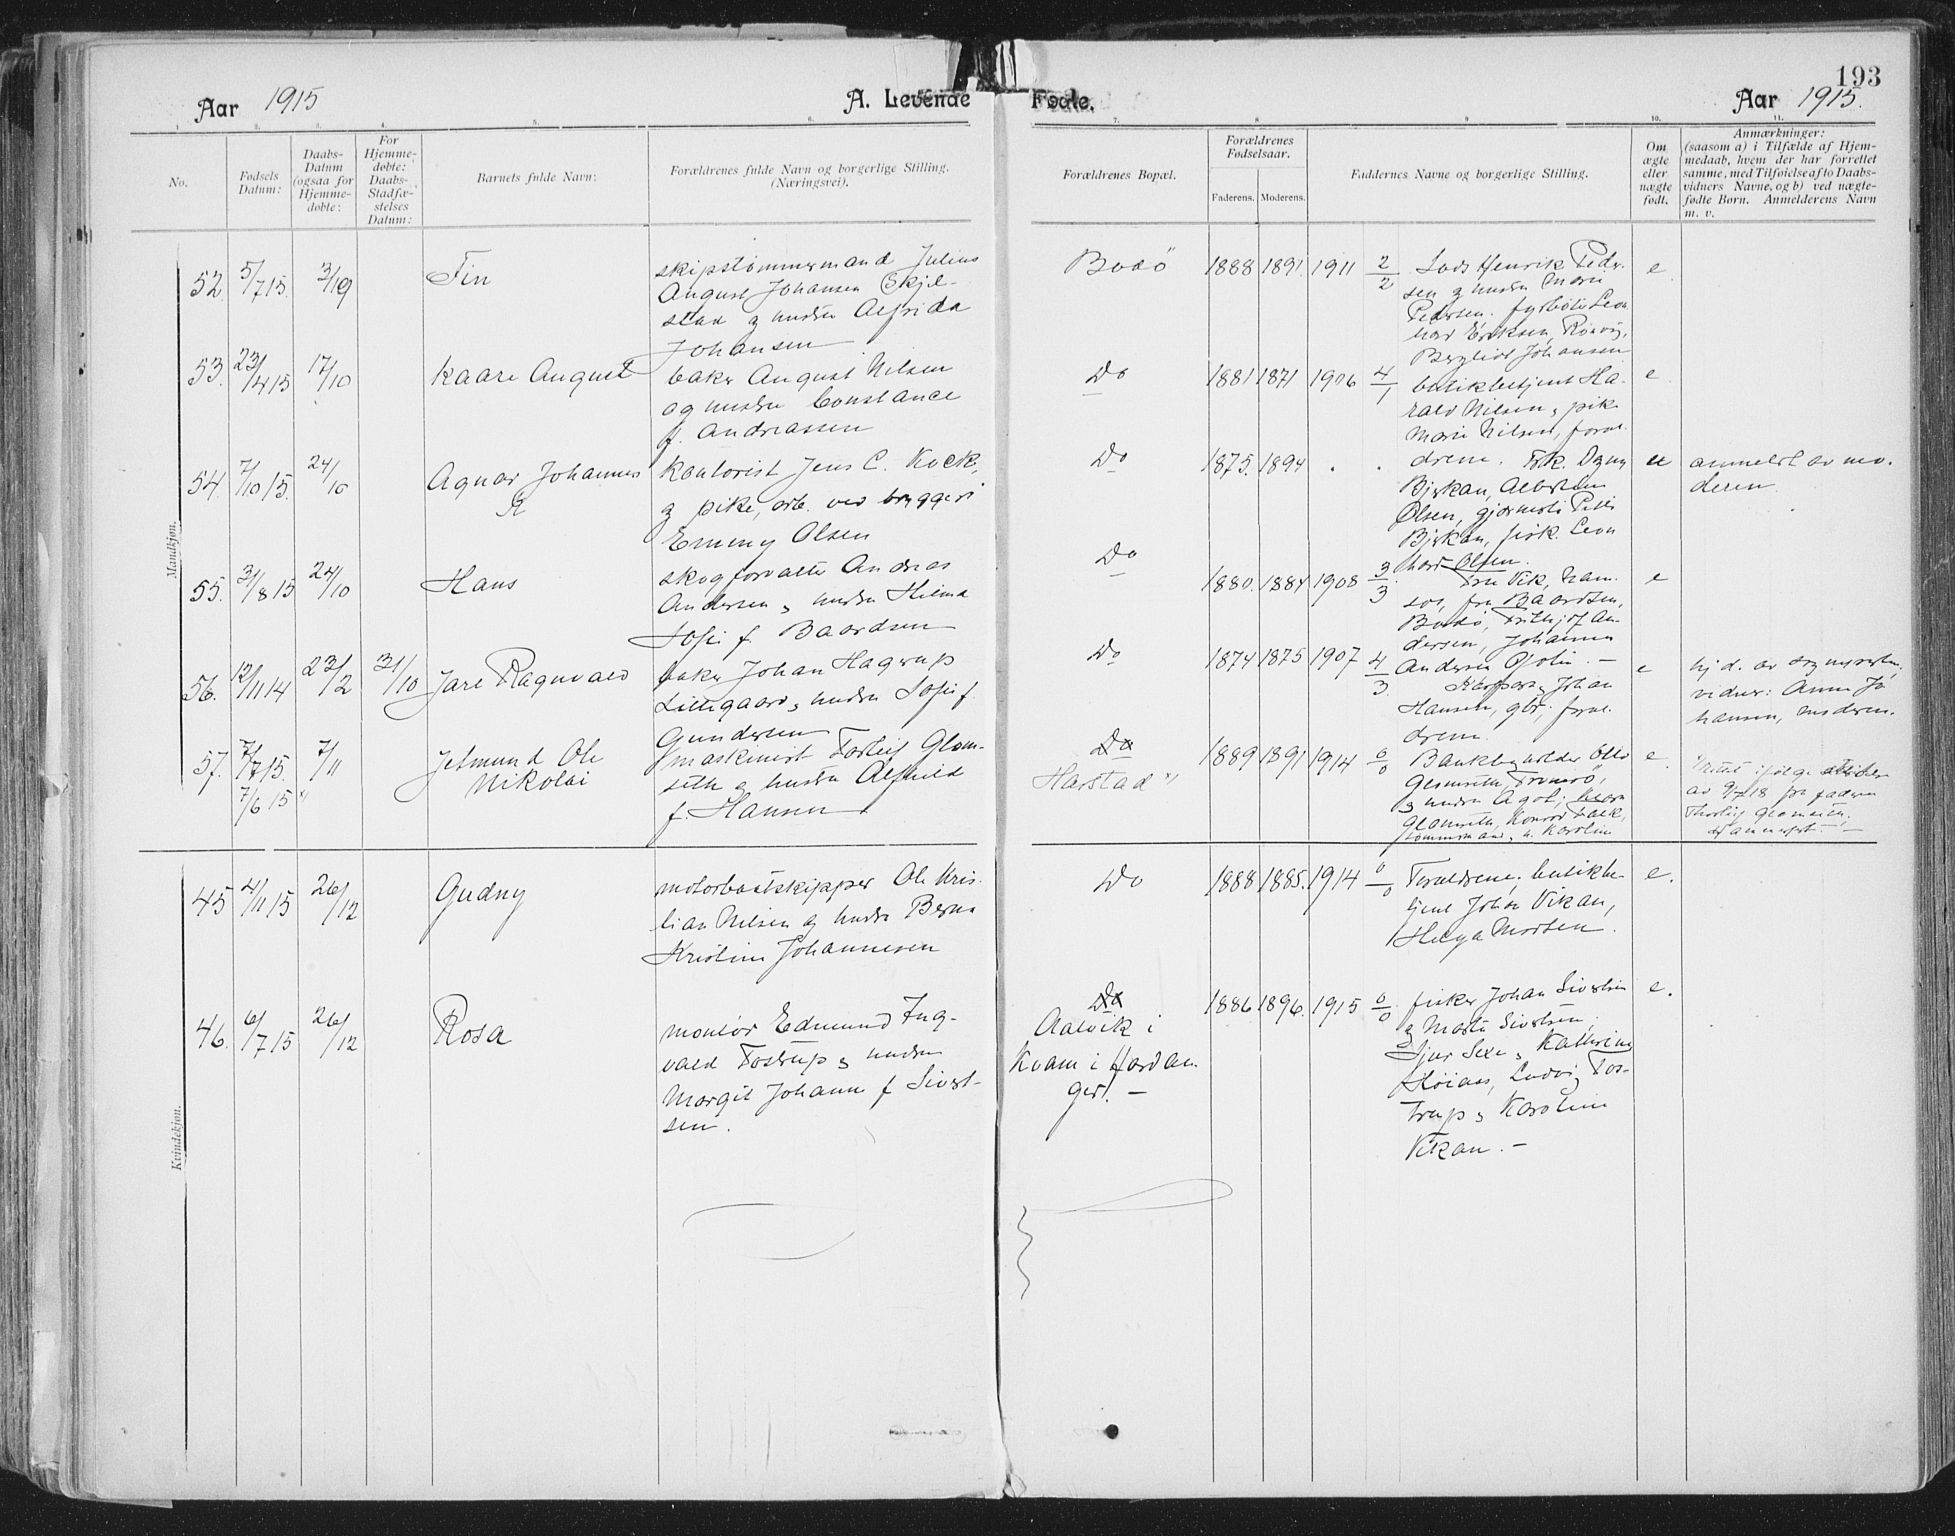 193
Aar 1915
A. Levende
Fødte.
Aar 1915.
1. 2. 3. 4. 5. 6.
7. 8. 9. 10. 11.
No.
Fødsels
Datum:
Daabs-
Datum
(ogsaa for
Hjemme-
døbte:
For
Hjemme-
døbte:
Daabs-
Stadfæ-
stelses
Datum:
Barnets fulde Navn:
Forældrenes fulde Navn og borgerlige Stilling.
(Næringsvei).
Forældrenes Bopæl.
Forældrenes
Fødselsaar.
Faderens. Moderens.
Faddernes Navne og borgerlige Stilling.
Om
ægte
eller
uægte
født.
Anmærkninger:
(saasom a) i Tilfælde af Hjem-
medaab, hvem der har forrettet
samme, med Tilføielse af to Daabs-
vidners Navne, og b) ved uægte-
fødte Børn. Anmelderens Navn
m. v.
Mandkjøn.
52. 5/7 15. 3/10
Fin
skipstømmermand Julius
August Johansen Skjel-
stad og hustru Alfrida
Johansen
Bodö
1888 1891 1911 2/2
Lods Henrik Peder-
sen og hustru Marie
Pedersen. fyrbøter Leon
hard Eriksen, Rønvig,
Bergliot Johansen
e
53. 23/4 15 17/10
Kaare August
baker August Nilsen
og hustru Constance
f. Andreassen
Do
1881 1871 1906 4/1
butikbetjent Ha-
rald Nilsen, pike
Marie Nilsen, foræl-
drene.
e
54. 7/10 15. 24/10
Agnar Johannes
kontorist Jens C. Koch,
og pike, arb. ved bryggeri
Emmy Olsen
Do
1875. 1894 . .
Frk. Dagny
Bjerkan, Albertine
Olsen,
Bjerkan, fisk. Leon
hard Olsen.
u
anmeldt av mo-
deren.
55. 31/8 15 24/10
Hans
skogforvalter Andreas
Andersen og hustru Hilma
Sofie f. Baardsen
Do
1880. 1884 1908 3/3
Fru Vik, Nam-
sos, fru Baardsen,
Bodø, Frithjof An-
dersen, Johanna
Andersen
e
56. 12/11 14 23/2 31/10
Jarl Ragnvald
baker Johan Hagerup
Lillegaard og hustru Sofie f.
Gundersen
Do
1874 1875 1907 4/3
Johan
Hansen, gbr, foræl-
drene.
e
hj.d. av
vidner: Anna Jo
hansen, moderen.
57. 7/7 15. 7/11
7/6 15 "
Jetmund Ole
Nikolai
maskinist Torleif Glom-
seth og hustru Alfhild
f. Hansen
Do
Harstad "
1889 1891 1914 0/0
Bankbogholder Otto
Glomseth, Tromsø,
og hustru Agot;
Glomseth, Konrad Falk,
tømmermand, og Karoline
e.
ifølge
av 9/7 18 fra faderen
Thorleif Glomseth.
Kvindekjøn.
45 4/11 15 26/12
Gudny
motorbaatskipper Ole Kris-
tian Nilsen og hustru Berna
Kristine Johannesen
Do
1888 1885. 1914 0/0
Forældrene, butikbe-
tjent Johan Vikan,
Helga Morsen.
e.
46. 6/7 15 26/12
Rosa
montør Edmund Ing-
vald Tostrup og hustru
Margit Johanne f Sivert-
sen.
Do
Aalvik i
Kvam i Hardan-
ger. –
1886 1896. 1915 0/0
fisker Johan Sivertsen
og Marta Sivertsen,
Sjur Sexe og Kathrine
Ludvig Tos-
trup og Karoline
Vikan. –
e.